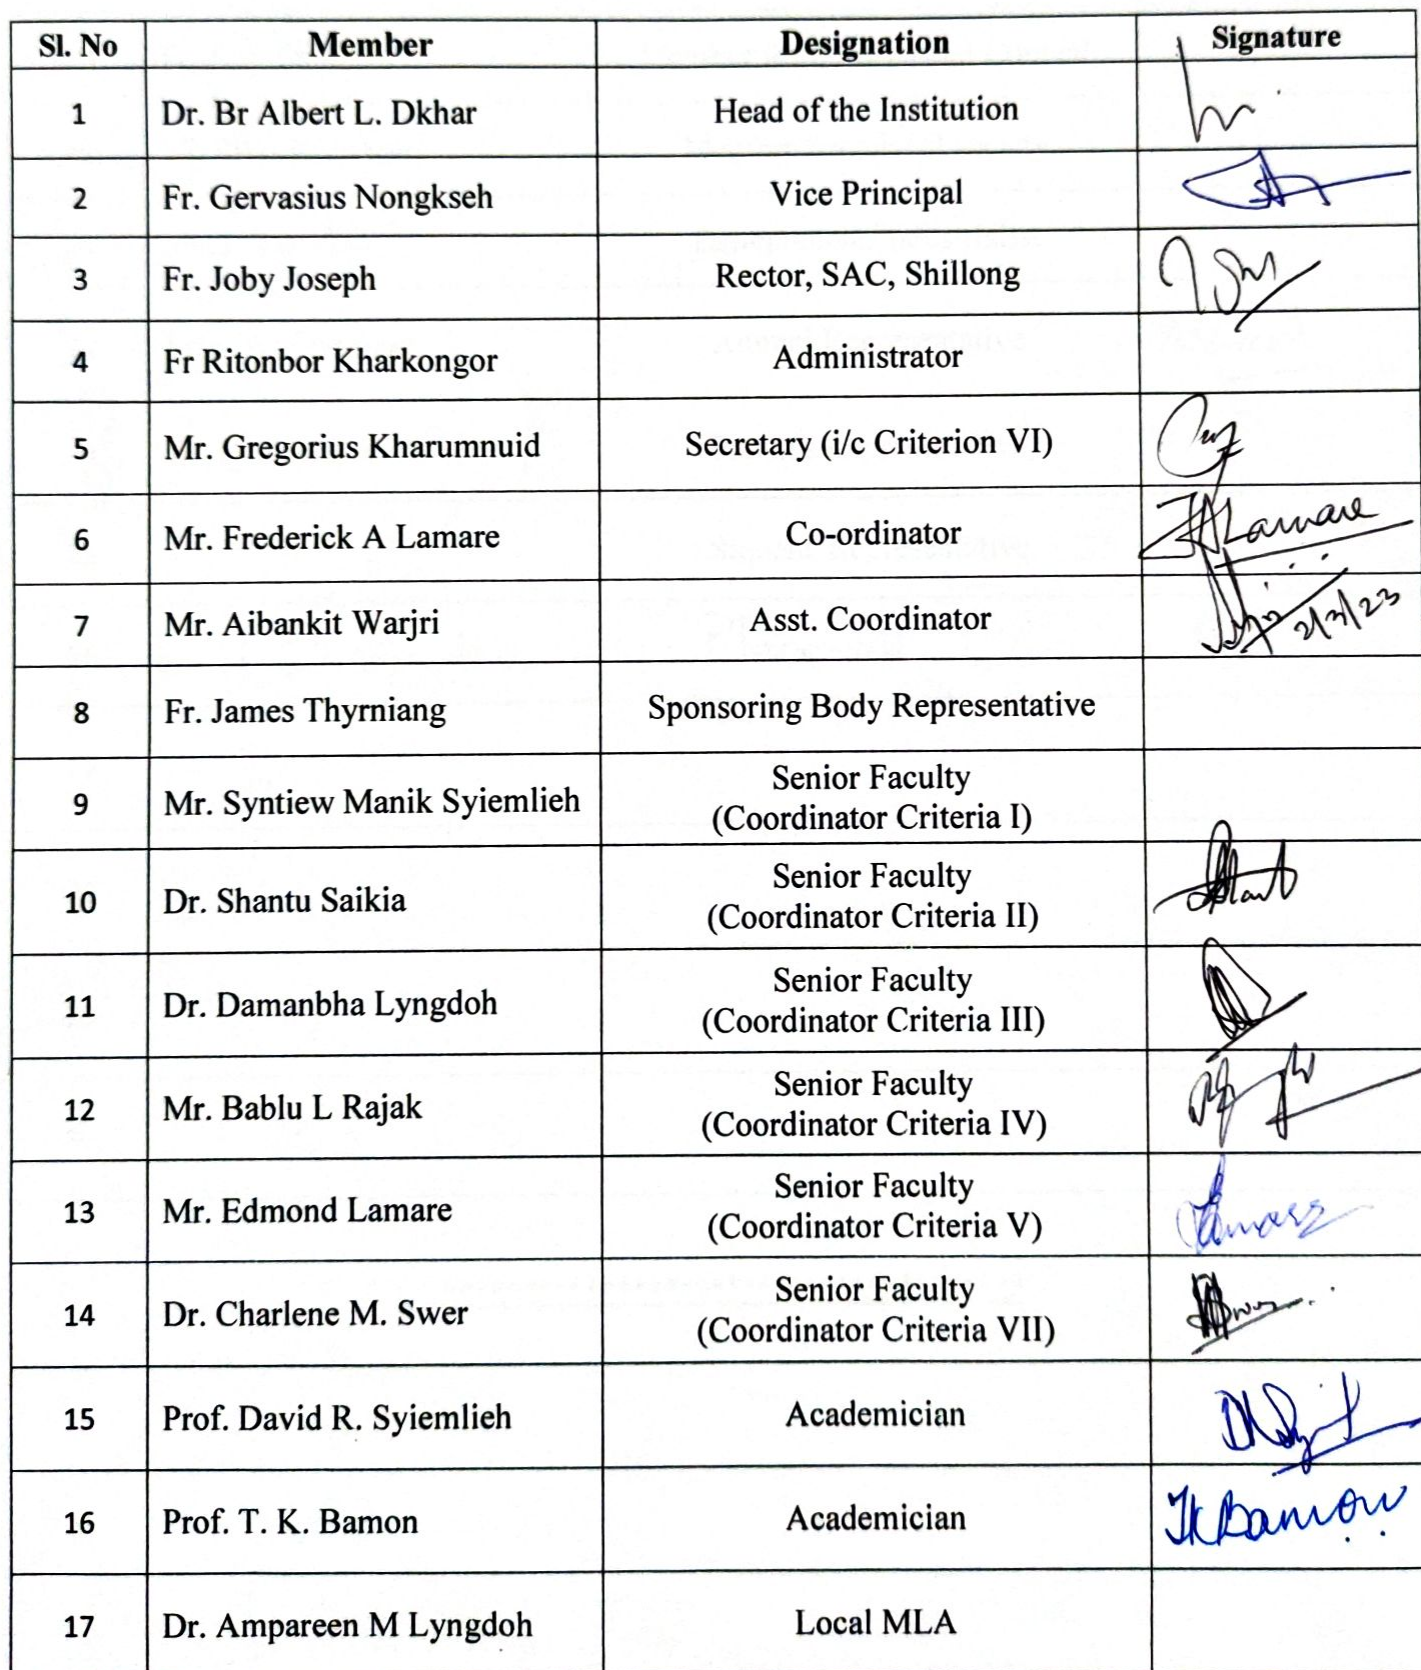 Sl. No Member Designation Signature
1 Dr. Br Albert L. Dkhar Head of the Institution
2 Fr. Gervasius Nongkseh Vice Principal
3 Fr. Joby Joseph Rector, SAC, Shillong
4 Fr Ritonbor Kharkongor Administrator
5 Mr. Gregorius Kharumnuid Secretary (i/c Criterion VI)
6 Mr. Frederick A Lamare Co-ordinator Lamare
7 Mr. Aibankit Warjri Asst. Coordinator 2/3/23
8 Fr. James Thyrniang Sponsoring Body Representative
9 Mr. Syntiew Manik Syiemlieh Senior Faculty
(Coordinator Criteria I)
10 Dr. Shantu Saikia Senior Faculty
(Coordinator Criteria II)
11 Dr. Damanbha Lyngdoh Senior Faculty
(Coordinator Criteria III)
12 Mr. Bablu L Rajak Senior Faculty
(Coordinator Criteria IV)
13 Mr. Edmond Lamare Senior Faculty
(Coordinator Criteria V)
14 Dr. Charlene M. Swer Senior Faculty
(Coordinator Criteria VII)
15 Prof. David R. Syiemlieh Academician
16 Prof. T. K. Bamon Academician TK Bamon
17 Dr. Ampareen M Lyngdoh Local MLA